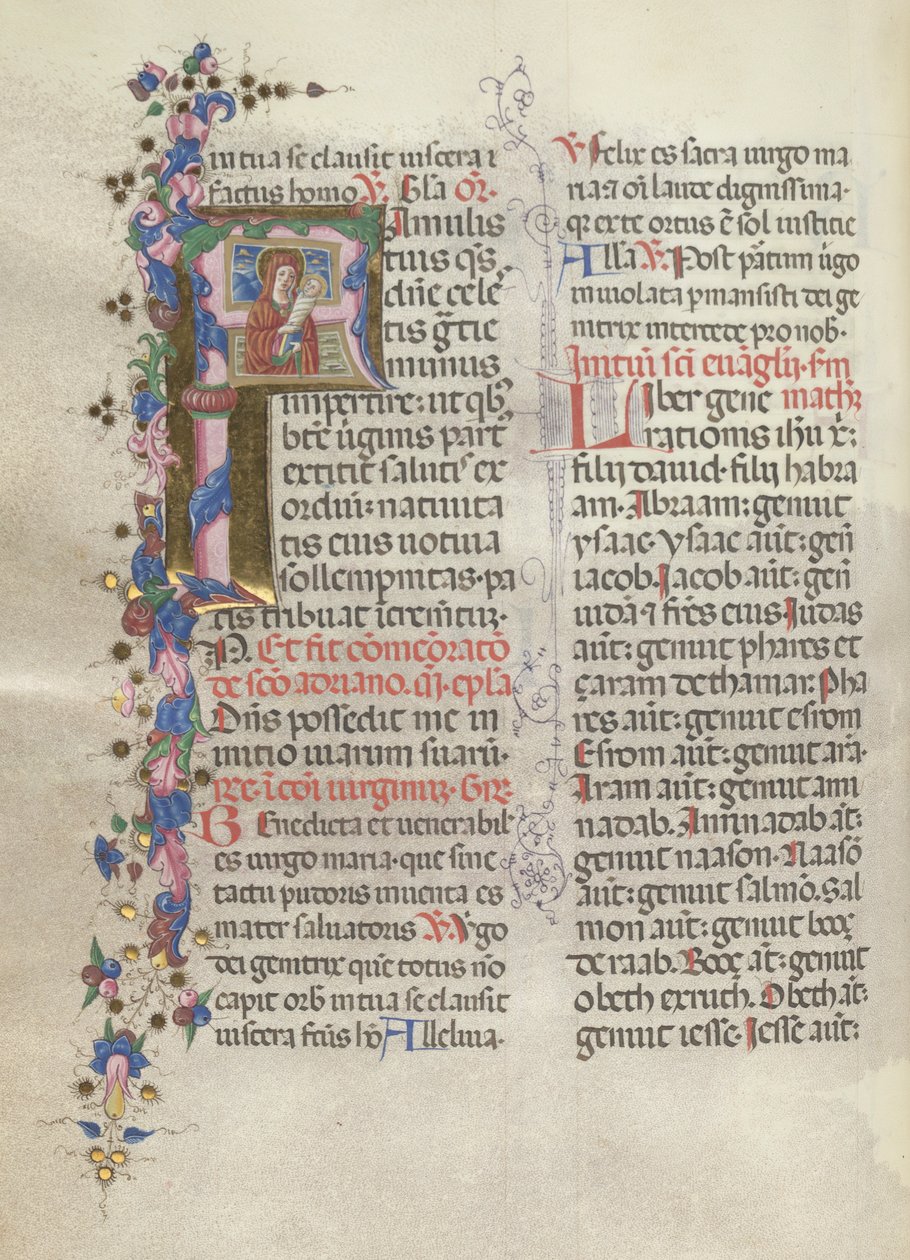 in tua se clausit uiscera i
factus homo V. Gl̄a Or̄.
Famulis
tuis qs̄.
dn̄e cele
tis gr̄tie
munus
impertire: ut qb⁹
bt̄e ūginis part⁹
extitit salutis ex
ordiū: natiuita
tis eius uotiua
sollempnitas. pa
cis tribuat īcrem̄tuꝝ.
Et fit cōmēoratō
de sc̄o adriano. ep̄la
Dn̄s possedit me in
initio uiarum suarū.
re. ī cōi uirginuꝝ. Gr̄.
Benedicta et uenerabil
es uirgo maria. que sine
tactu pudoris inuenta es
mater saluatoris V. V̄go
dei genitrix quē totus nō
capit orb̄ in tua se clausit
uiscera fc̄us hō Alleluia.
V. Felix es sacra uirgo ma
ria ⁊ oī laude dignissima.
qꝛ ex te ortus ē sol iusticie
All̄a V. Post pātum ūgo
inuiolata ꝑmansisti dei ge
nitrix intercede pro nob.
Initiū sc̄i euāglij. sm̄
Liber gene math̄ꝫ
rationis ih̄u x̄:
filij dauid. filij habra
am. Abraam: genuit
ysaac. ysaac aūt: gen̄
iacob. Iacob aūt: gen̄
iudā ⁊ fr̄es eius. Iudas
aūt: genuit phares et
çaram de thamar. Pha
res aūt: genuit esrom
Esrom aūt: genuit arā.
Aram aūt: genuit ami
nadab. Aminadab āt:
genuit naason. Naasō
aūt: genuit salmō. Sal
mon aūt: genuit booç
de raab. Booç āt: genuit
obeth ex ruth. Obeth āt:
genuit iesse. Iesse aūt: